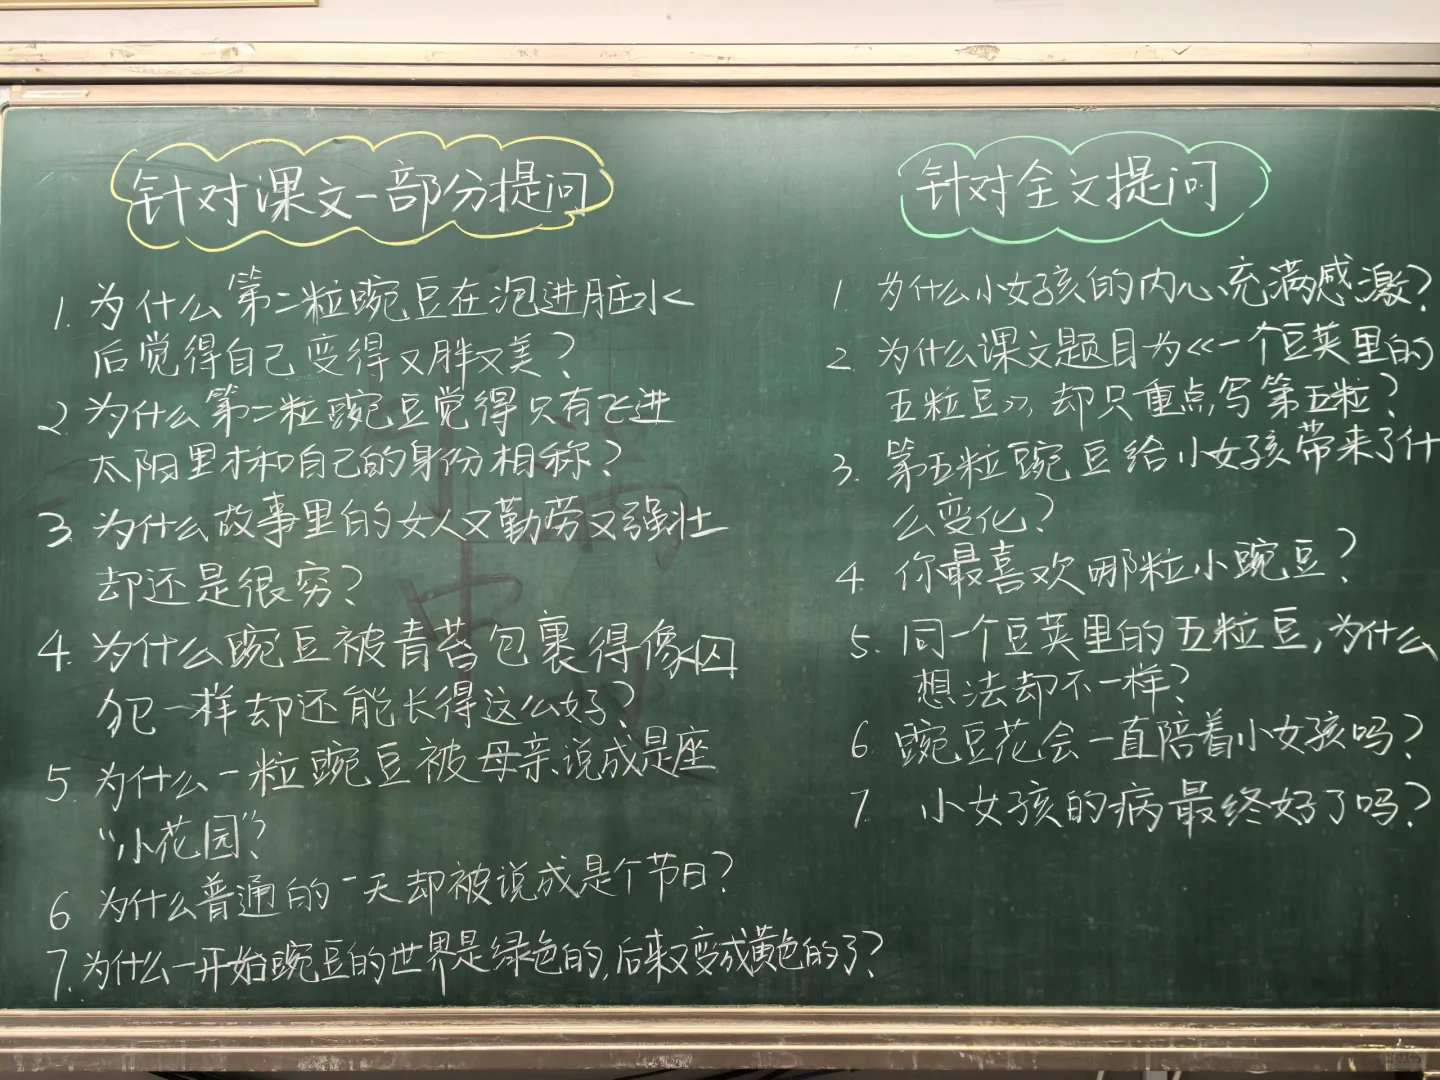 针对课文一部分提问
1. 为什么第二粒豌豆在泡进脏水
后觉得自己变得又胖又美?
2 为什么第二粒豌豆觉得只有飞进
太阳里才和自己的身份相称?
3 为什么故事里的女人又勤劳又强壮
却还是很穷?
4. 为什么豌豆被青苔包裹得像囚
犯一样却还能长得这么好?
5. 为什么一粒豌豆被母亲说成是座
“小花园”?
6 为什么普通的一天却被说成是个节日?
7. 为什么一开始豌豆的世界是绿色的,后来又变成黄色的了?
针对全文提问
1. 为什么小女孩的内心充满感激?
2. 为什么课文题目为《一个豆荚里的
五粒豆》,却只重点写第五粒?
3. 第五粒豌豆给小女孩带来了什
么变化?
4. 你最喜欢哪粒小豌豆?
5. 同一个豆荚里的五粒豆,为什么
想法却不一样?
6. 豌豆花会一直陪着小女孩吗?
7. 小女孩的病最终好了吗?